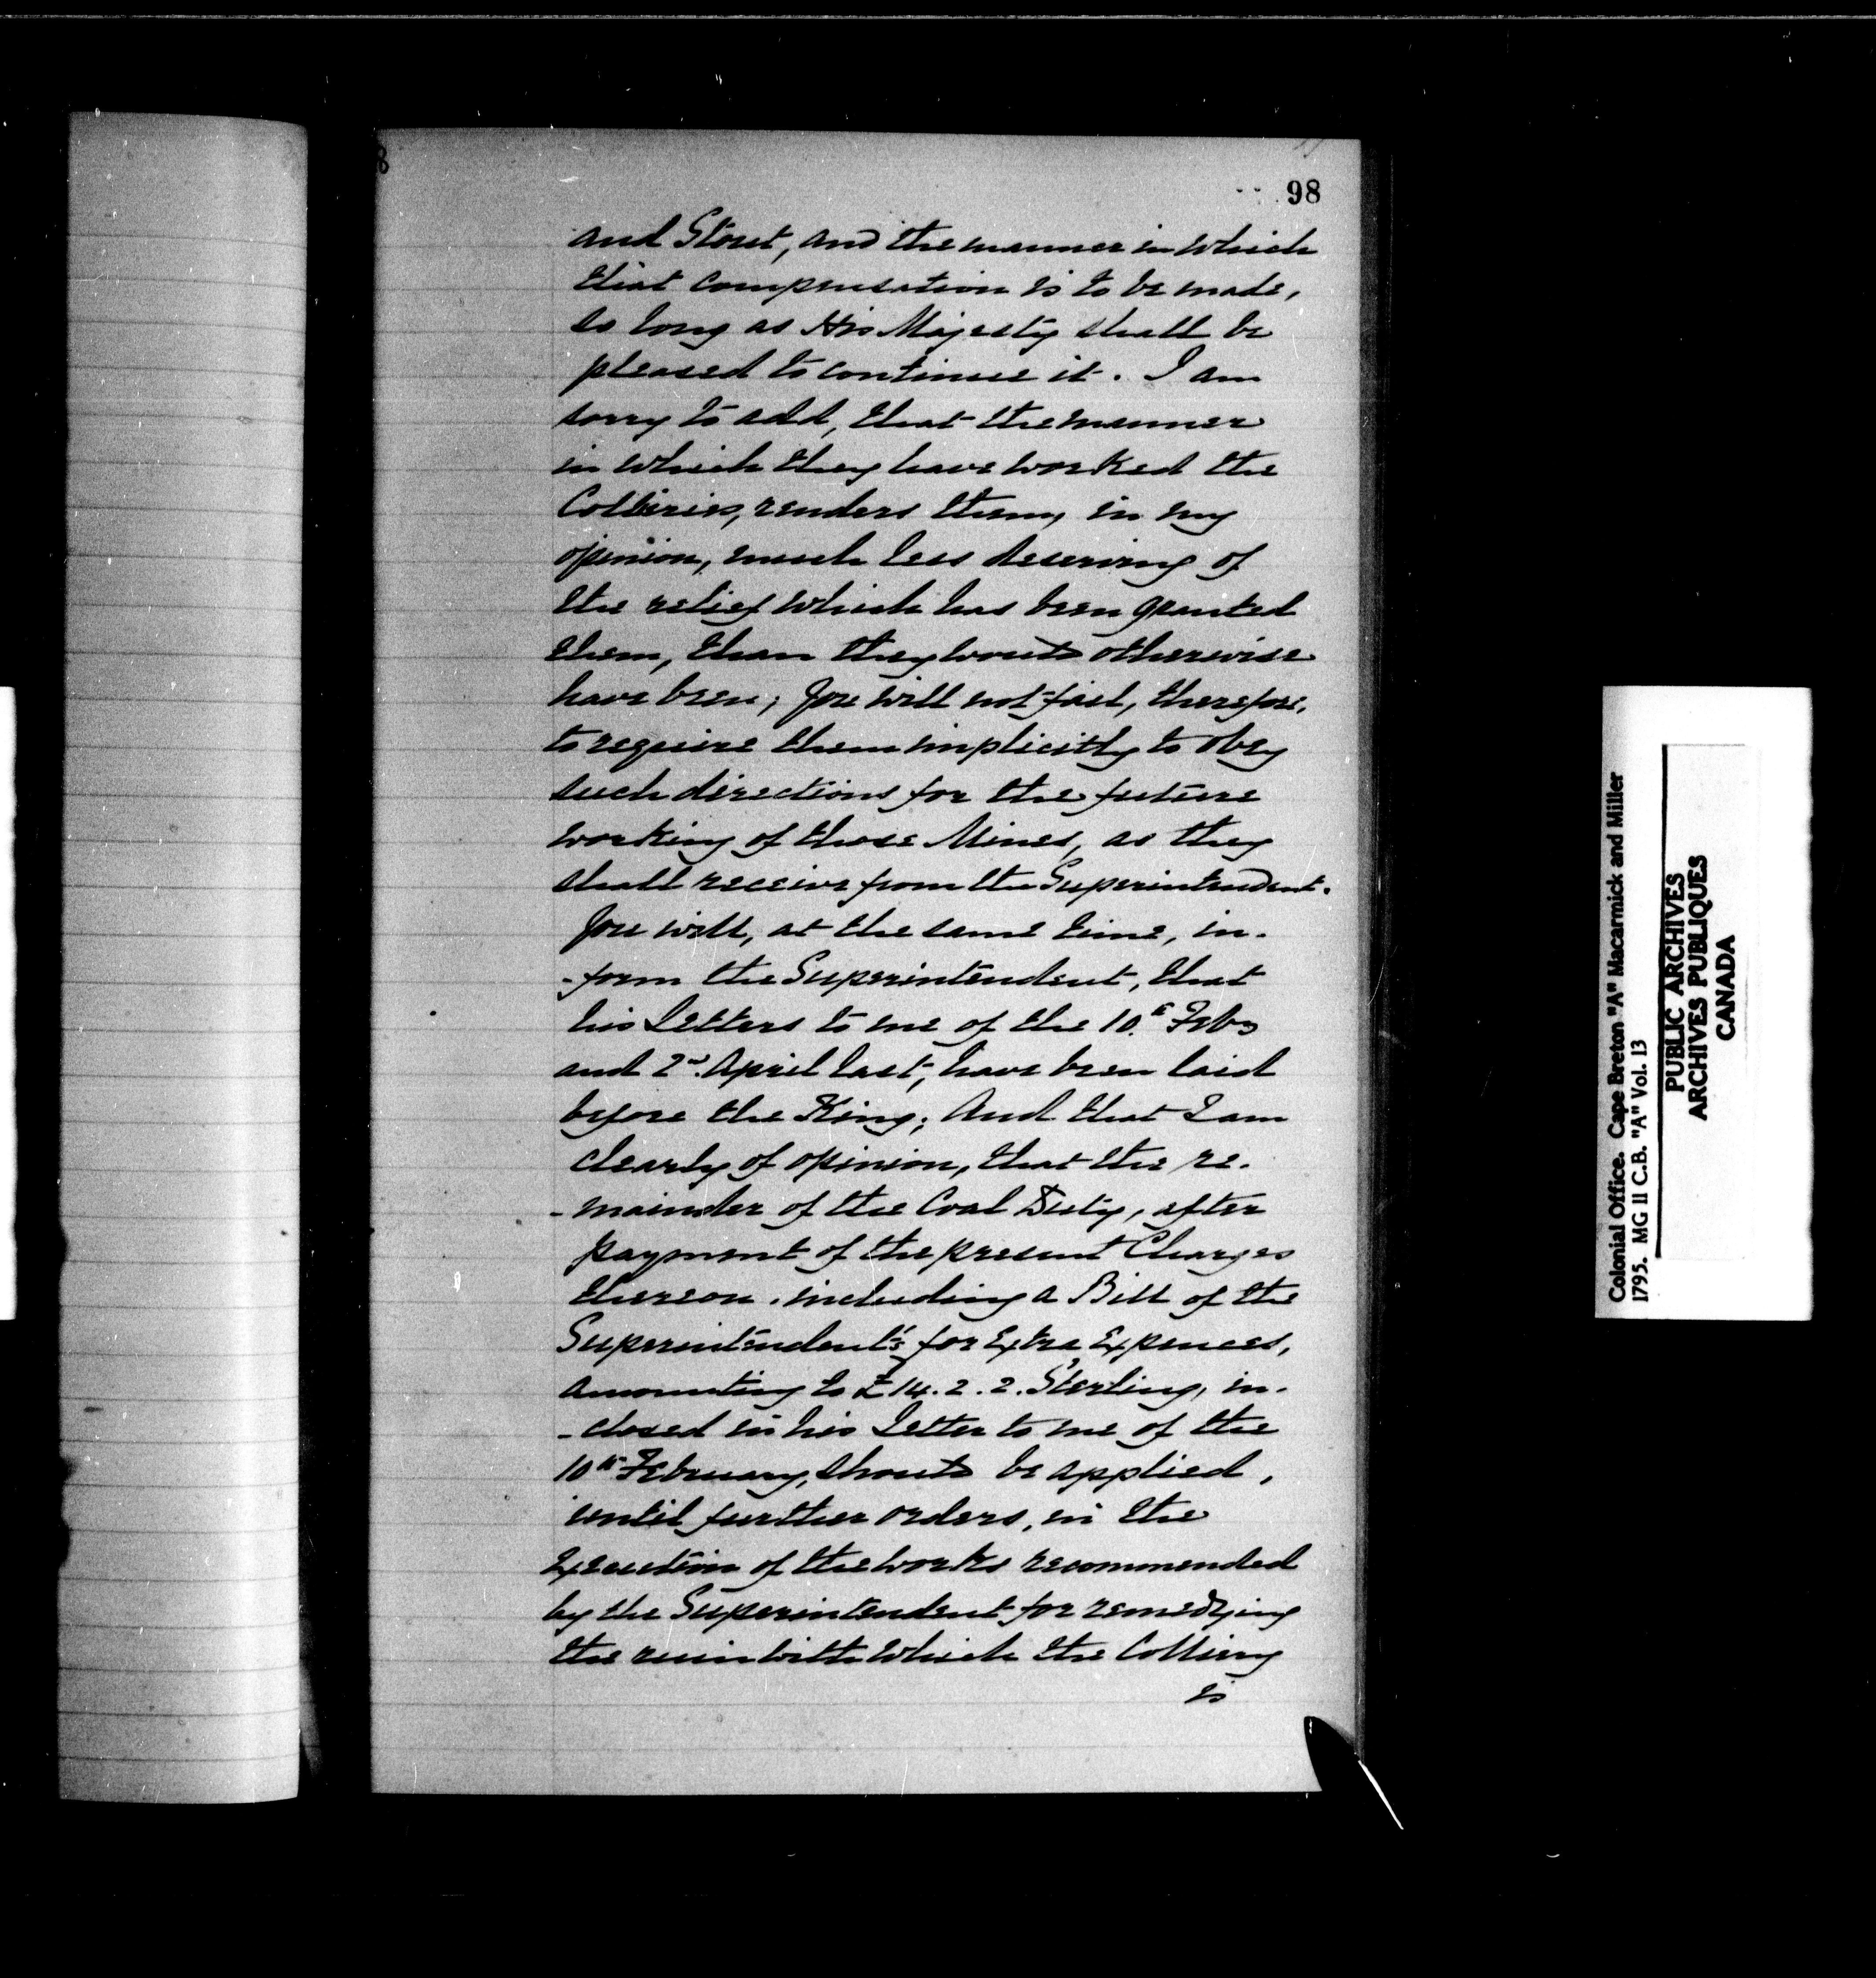 98
and Stout, and the manner in which
that compensation is to be made,
so long as His Majesty shall be
pleased to continue it. I am
sorry to add, that the manner
in which they have worked the
Collieries, renders them, in my
opinion, much less deserving of
the relief which has been granted
them, than they would otherwise
have been; You will not fail, therefore,
to require them implicitly to obey
such directions for the future
working of those Mines, as they
shall receive from the Superintendent.
You will, at the same time, in-
-form the Superintendent, that
his Letters to me of the 10.th Feby
and 2nd. April last, have been laid
before the King; And that I am
clearly of opinion, that the re-
-mainder of the Coal Duty, after
payment of the present Charges
thereon, including a Bill of the
Superintendent's for Extra Expences,
amounting to £14.2.2. Sterling, in-
-closed in his Letter to me of the
10th February, should be applied,
until further orders, in the
Execution of the works recommended
by the Superintendent for remedying
the ruin with which the Colliery
is
Colonial Office. Cape Breton "A" Macarmick and Miller
1795. MG 11 C.B. "A" Vol. 13
PUBLIC ARCHIVES
ARCHIVES PUBLIQUES
CANADA